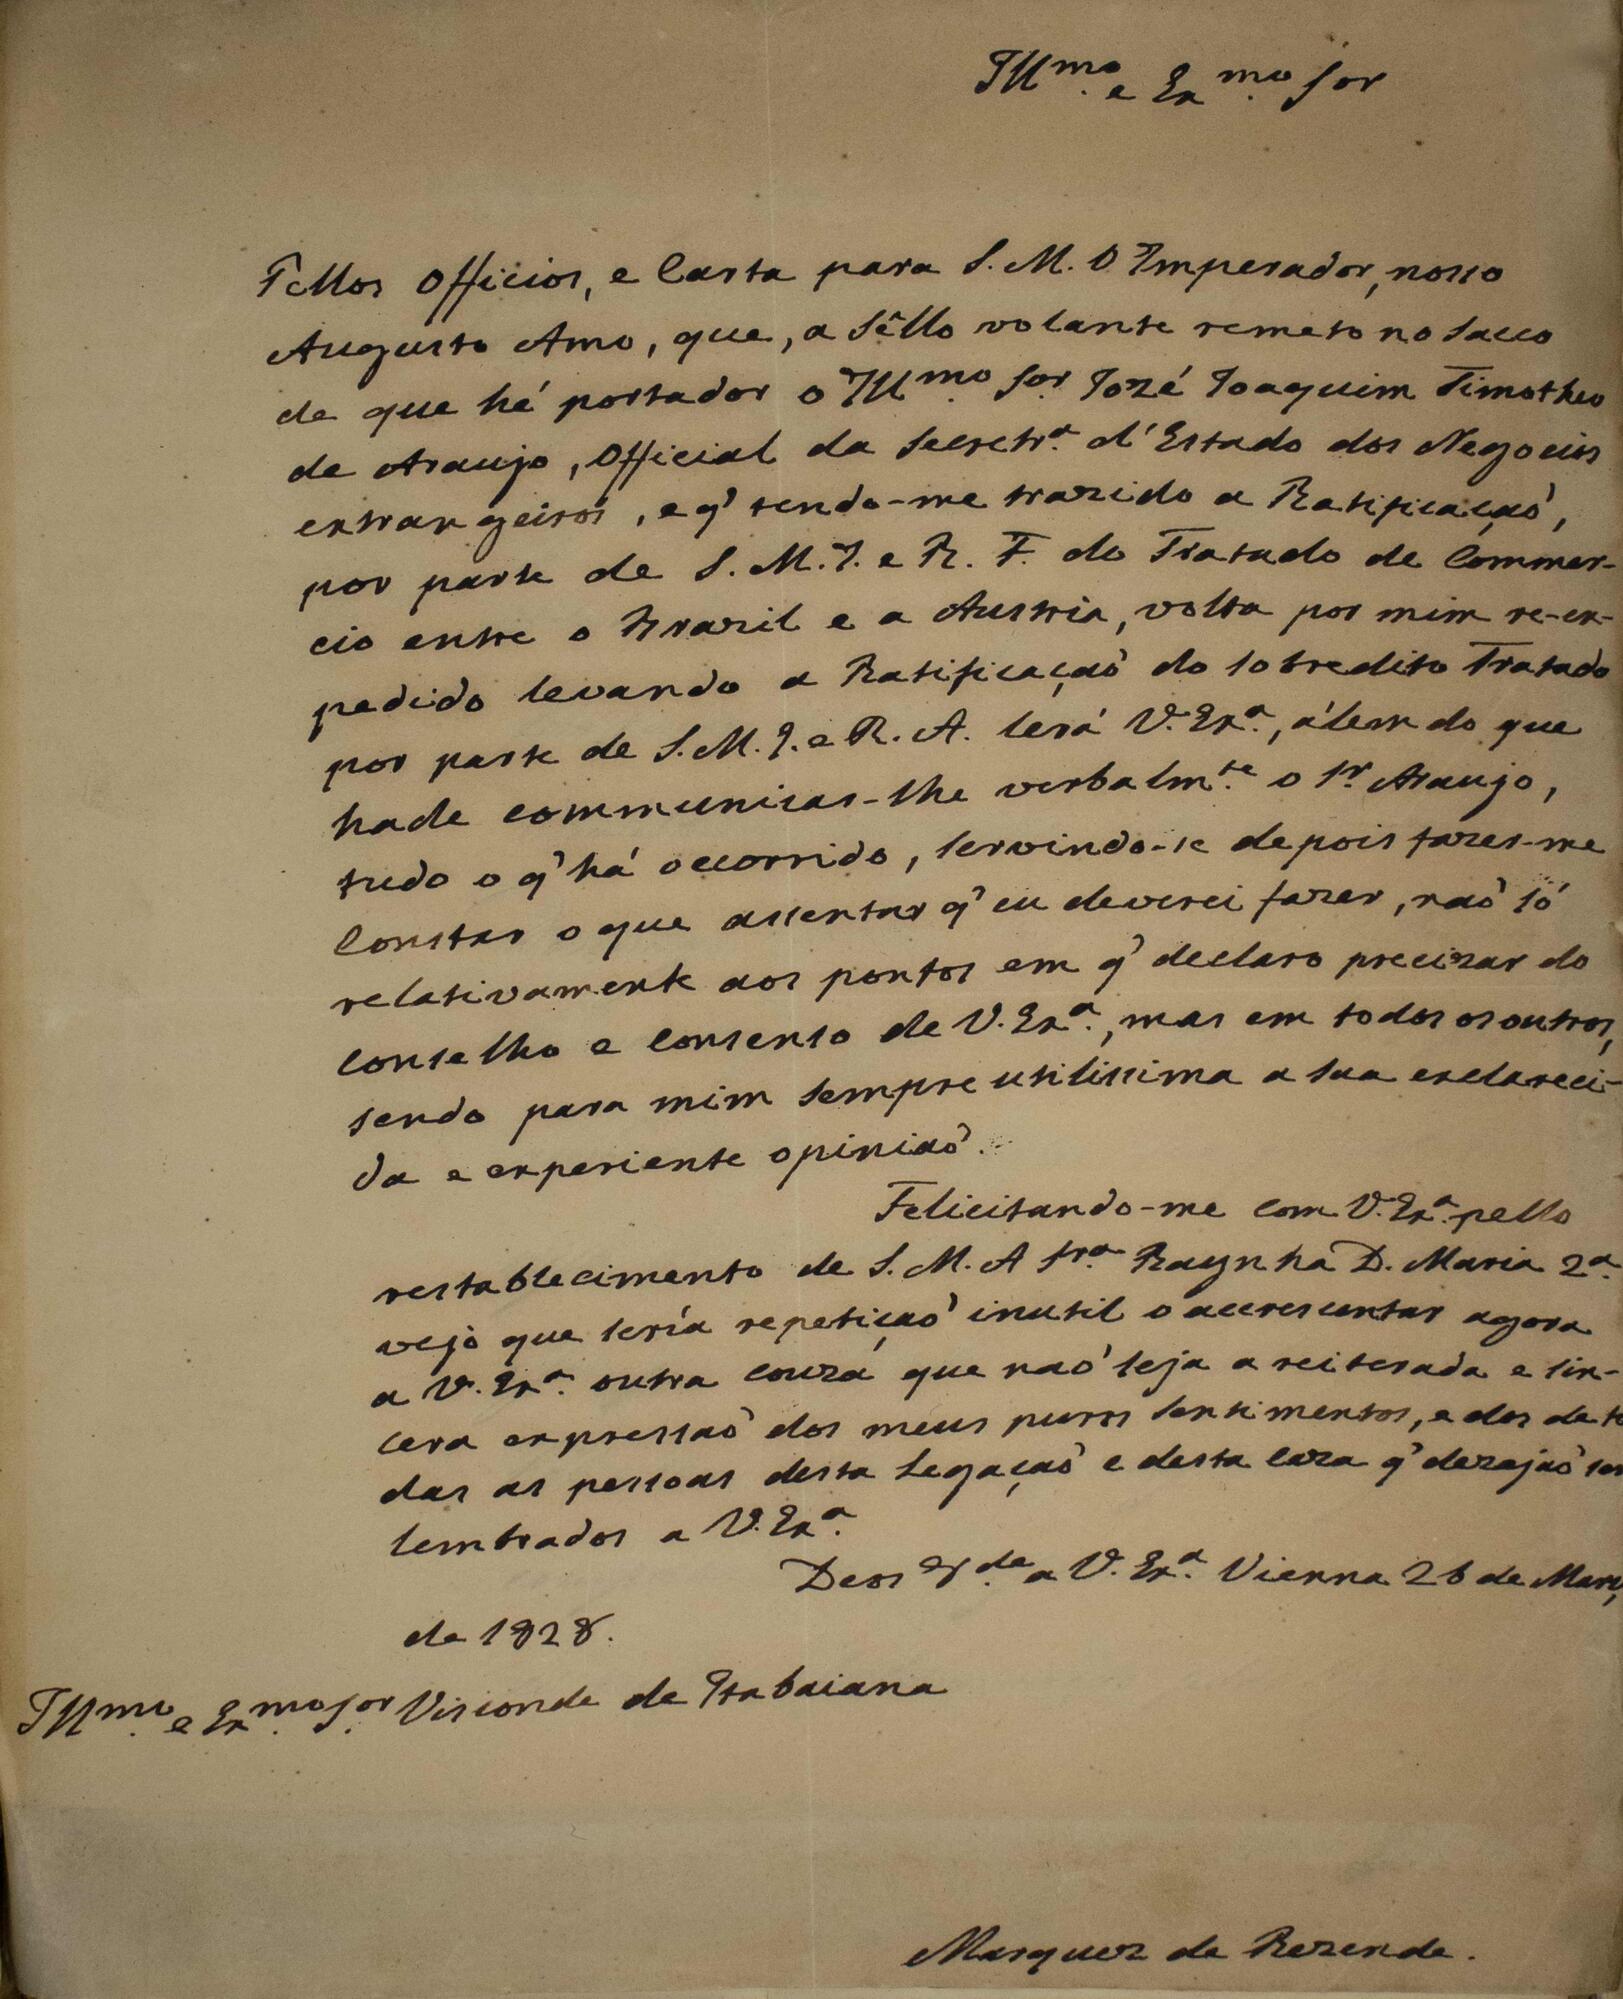 Illmo. e Exmo. Sor
Pellos Officios, e Carta para S. M. O Imperador, nosso
Augusto Amo, que, a sêllo volante remeto no sacco
de que hé portador o Illmo. Sor. Jozé Joaquim Timotheo
de Araujo, Official da Secretra. d'Estado dos Negocios
extrangeiros, e q' tendo-me trazido a Ratificaçaõ,
por parte de S. M. I. e R. F. do Tratado de Commer-
cio entre o Brazil e a Austria, volta por mim re-ex-
pedido levando a Ratificaçaõ do sobredito Tratado
por parte de S. M. I. e R. A. lerá V. Exa., álem do que
hade communicar-lhe verbalmte. o Sr. Araujo,
tudo o q' há occorrido, servindo-se depois fazer-me
constar o que assentar q' eu deverei fazer, naõ só
relativamente aos pontos em q' declaro precizar do
conselho e consenso de V. Exa., mas em todos os outros,
sendo para mim sempre utilissima a sua esclareci-
da e experiente opiniaõ.
Felicitando-me com V. Exa. pello
restablecimento de S. M. A Sra. Raynha D. Maria 2a.
vejo que sería repetiçaõ inutil o accrescentar agora
a V. Exa. outra couza que naõ seja a reiterada e sin-
cera expressaõ dos meus puros sentimentos, e dos de to
das as pessoas desta Legaçaõ e desta caza q' dezejaõ ser
lembrados a V. Exa.
Deos Gde. a V. Exa. Vienna 26 de Março
de 1828.
Illmo. e Exmo. Sor. Visconde de Itabaiana
Marquez de Rezende.